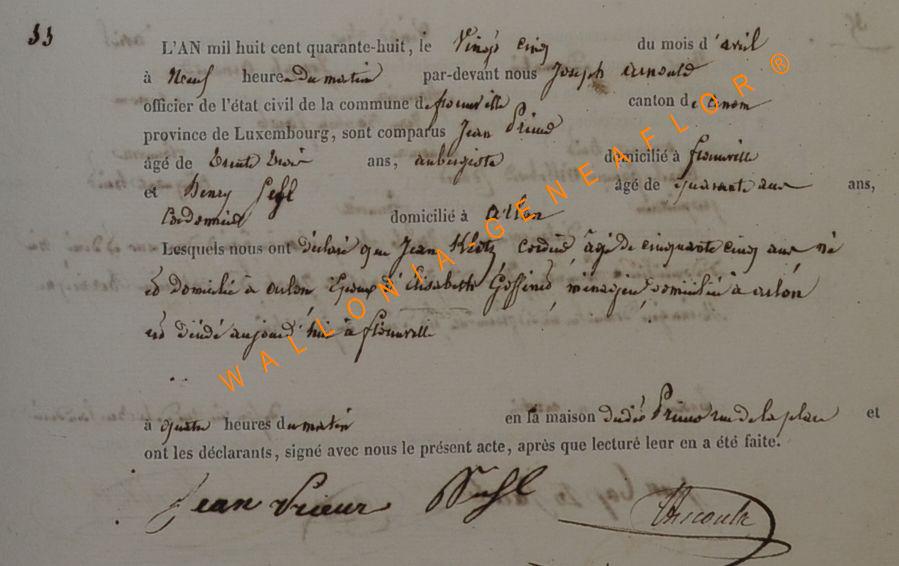 33
L'AN mil huit cent quarante-huit, le Vingt cinq du mois d'avril
à Neuf heures du matin par-devant nous Joseph Arnould
officier de l'état civil de la commune de florenville canton de
province de Luxembourg, sont comparus Jean Prieur
âgé de trente trois ans, aubergiste domicilié à florenville
et Henry âgé de quarante ans,
Cordonnier domicilié à arlon
Lesquels nous ont déclaré que Jean Klotz âgé de cinquante cinq ans né
et domicilié à arlon Epoux d'Elisabeth Goffinet ménagère domiciliée à arlon
est décédé aujourd'hui à florenville
à quatre heures du matin en la maison dudit Prieur rue de la place et
ont les déclarants, signé avec nous le présent acte, après que lecture leur en a été faite.
Jean Prieur
WALLONIA-GENEAFLOR®